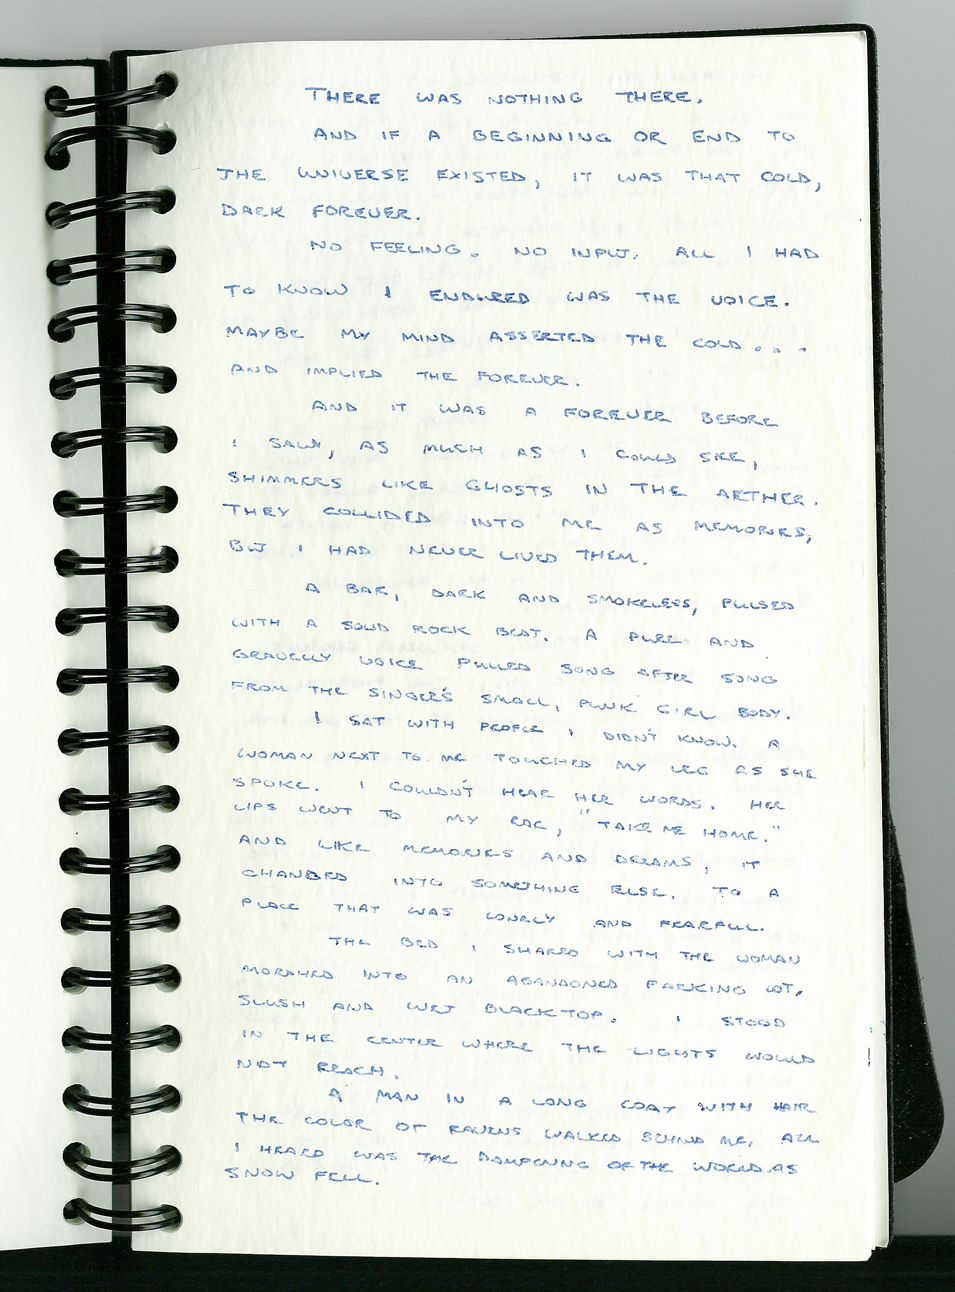 THERE WAS NOTHING THERE.
AND IF A BEGINNING OR END TO
THE UNIVERSE EXISTED, IT WAS THAT COLD,
DARK FOREVER.
NO FEELING. NO INPUT. ALL I HAD
TO KNOW I ENDURED WAS THE VOICE.
MAYBE MY MIND ASSERTED THE COLD...
AND IMPLIED THE FOREVER.
AND IT WAS A FOREVER BEFORE
I SAW, AS MUCH AS I COULD SEE,
SHIMMERS LIKE GHOSTS IN THE AETHER.
THEY COLLIDED INTO ME AS MEMORIES,
BUT I HAD NEVER LIVED THEM.
A BAR, DARK AND SMOKELESS, PULSED
WITH A SOLID ROCK BEAT. A PURE AND
GRAVELLY VOICE PULLED SONG AFTER SONG
FROM THE SINGER'S SMALL, PUNK GIRL BODY.
I SAT WITH PEOPLE I DIDN'T KNOW. A
WOMAN NEXT TO ME TOUCHED MY LEG AS SHE
SPOKE. I COULDN'T HEAR HER WORDS. HER
LIPS WENT TO MY EAR, "TAKE ME HOME."
AND LIKE MEMORIES AND DREAMS, IT
CHANGED INTO SOMETHING ELSE. TO A
PLACE THAT WAS LONELY AND FEARFUL.
THE BED I SHARED WITH THE WOMAN
MORPHED INTO AN ABANDONED PARKING LOT,
SLUSH AND WET BLACKTOP. I STOOD
IN THE CENTER WHERE THE LIGHTS WOULD
NOT REACH.
A MAN IN A LONG COAT WITH HAIR
THE COLOR OF RAVENS WALKED BEHIND ME. ALL
I HEARD WAS THE DAMPENING OF THE WORLD AS
SNOW FELL.